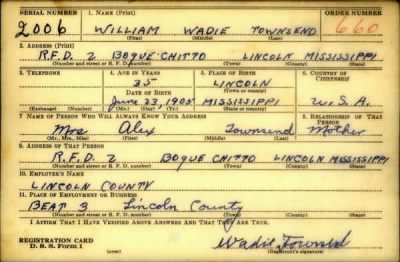 SERIAL NUMBER 1. NAME (Print) ORDER NUMBER
2006 WILLIAM WADIE TOWNSEND 660
(First) (Middle) (Last)
2. ADDRESS (Print)
R.F.D. 2 BOGUE-CHITTO LINCOLN MISSISSIPPI
(Number and street or R. F. D. number) (Town) (County) (State)
3. TELEPHONE 4. AGE IN YEARS 5. PLACE OF BIRTH 6. COUNTRY OF CITIZENSHIP
35 LINCOLN
DATE OF BIRTH (Town or county)
June 23, 1905 MISSISSIPPI U.S.A.
(Exchange) (Number) (Mo.) (Day) (Yr.) (State or country)
7. NAME OF PERSON WHO WILL ALWAYS KNOW YOUR ADDRESS 8. RELATIONSHIP OF THAT PERSON
Mrs Alex Townsend Mother
(Mr., Mrs., Miss) (First) (Middle) (Last)
9. ADDRESS OF THAT PERSON
R.F.D. 2 BOGUE CHITTO LINCOLN MISSISSIPPI
(Number and street or R. F. D. number) (Town) (County) (State)
10. EMPLOYER'S NAME
LINCOLN COUNTY
11. PLACE OF EMPLOYMENT OR BUSINESS
BEAT 3 Lincoln County
(Number and street or R. F. D. number) (Town) (County) (State)
I AFFIRM THAT I HAVE VERIFIED ABOVE ANSWERS AND THAT THEY ARE TRUE.
REGISTRATION CARD
D. S. S. Form 1 Wadie Townsend
(Registrant's signature)